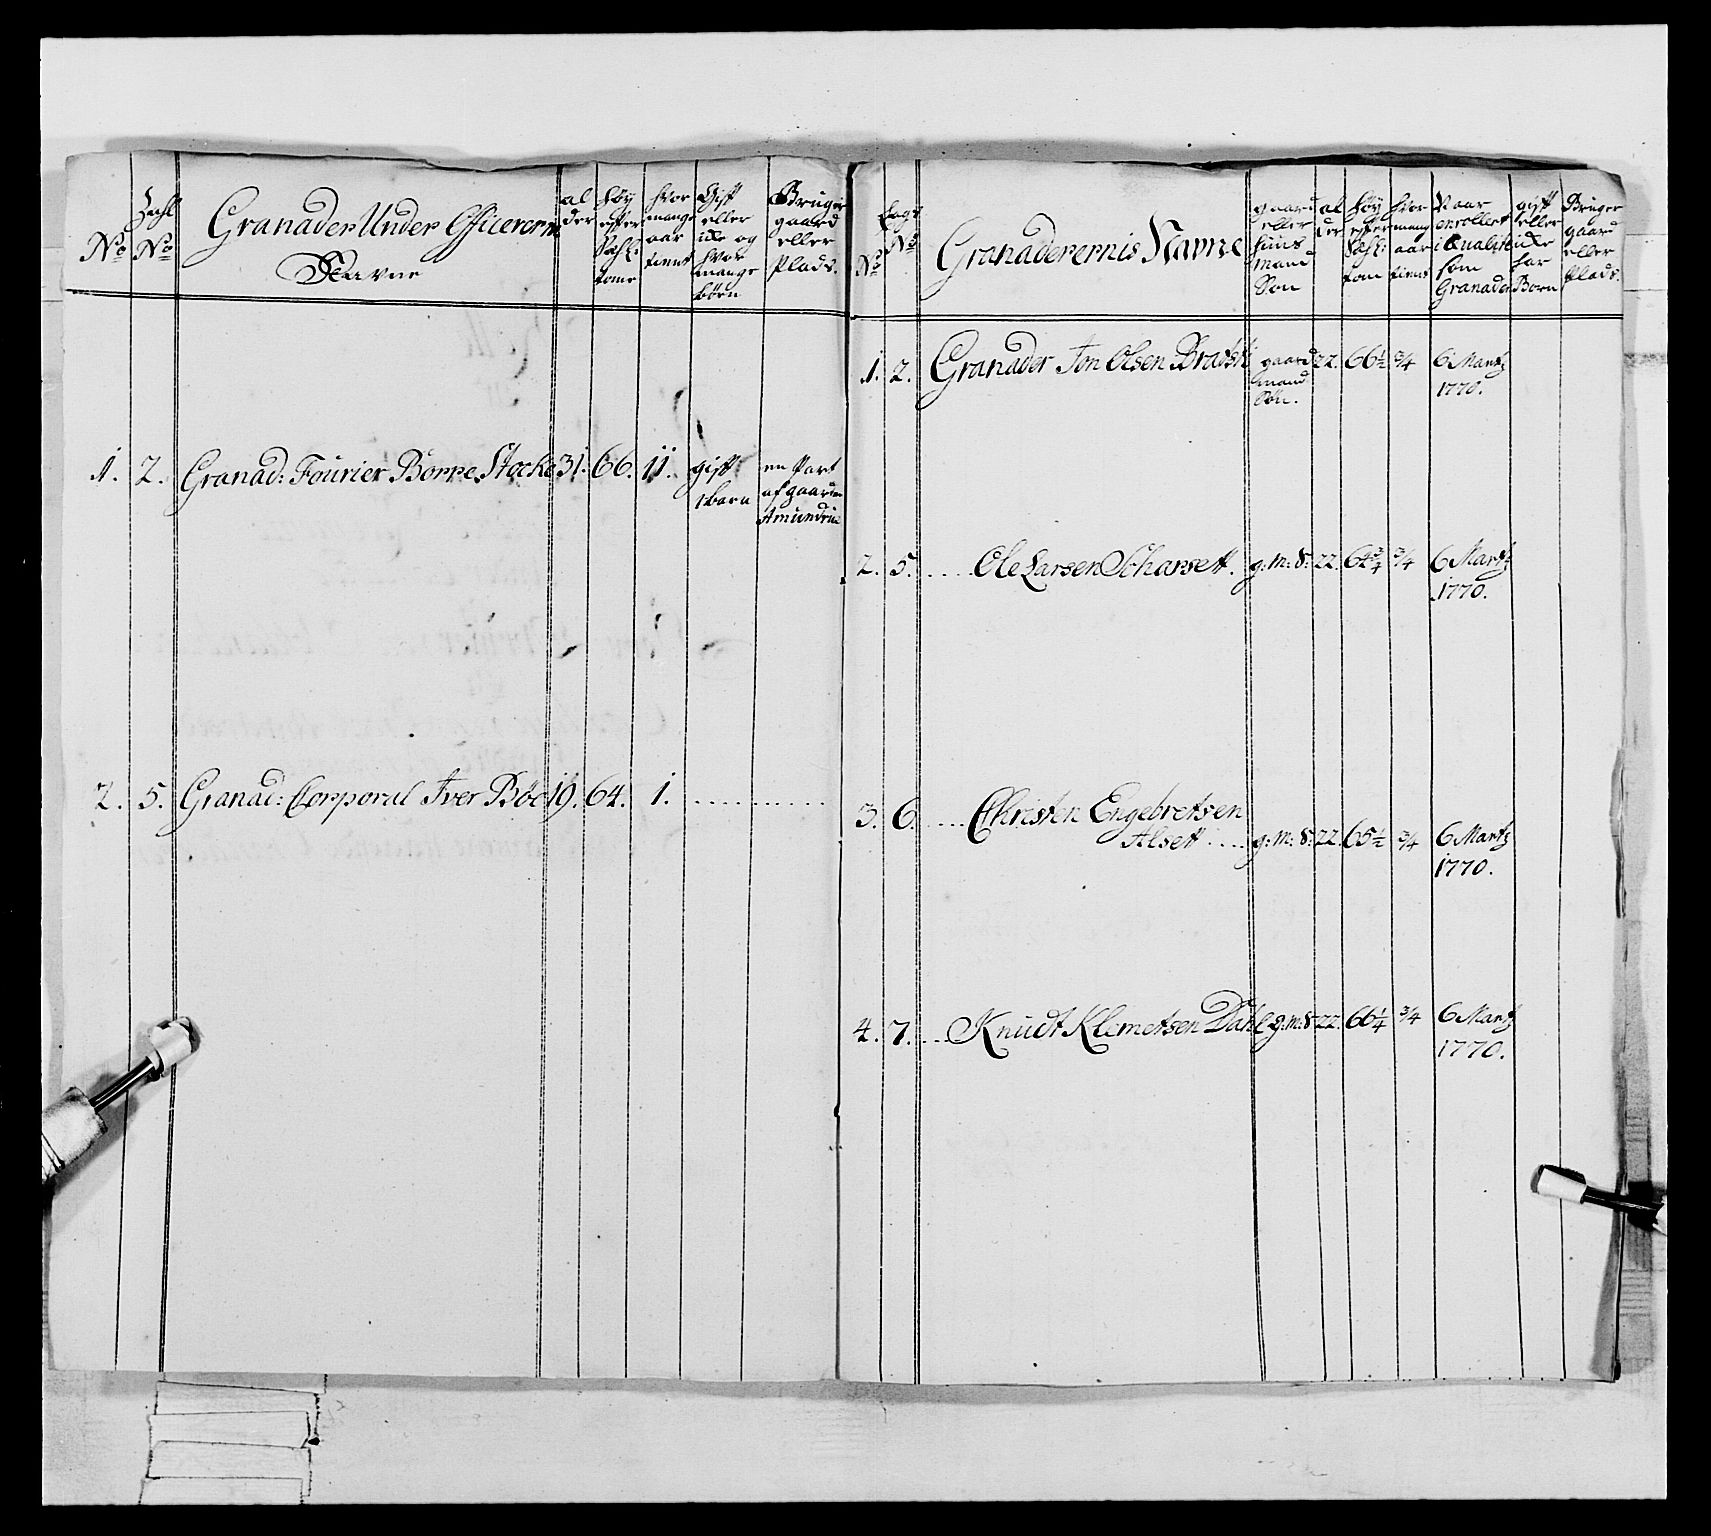 No
Lægds
No
Granader Under Officerern
Navne
al
der
Høy
efter
Sahl:
tome
hvor
mange
aar
tient
Gift
eller
icke og
hvor
mange
børn
Bruger
gaard
eller
Plads.
1. 2. Granad: Fourier Borre Stocke 31. 66. 11. gift en Part
1 barn af gaarden
Amundrue
2. 5. Granad: Corporal Iver Böe 19. 64. 1. ............
No
Lægs
No
Granaderernis Navne
gaard
eller
huus
Mand
Søn
al
der
Høy
efter
Sahl:
tom
hvor
mang
aar
tient
Naar
enrollert
i Qualite
som
Granader
gift
eller
icke
har
Børn
Bruger
gaard
eller
Plads.
1. 2. Granader Jon Olsen Bradsti gaard 22. 66½ ¾ 6 Martz
mand 1770.
Søn.
2. 5. ..... Ole Larsen Scharsett. g: M: S: 22. 64¾ ¾ 6 Martz
1770.
3. 6. .... Christen Engebretsen
Alsett .... g: M: S: 22. 65½ ¾ 6 Martz
1770.
4. 7. ... Knudt Klemetsen Dahle g: m: S 22. 66¼ ¾ 6 Martz
1770.